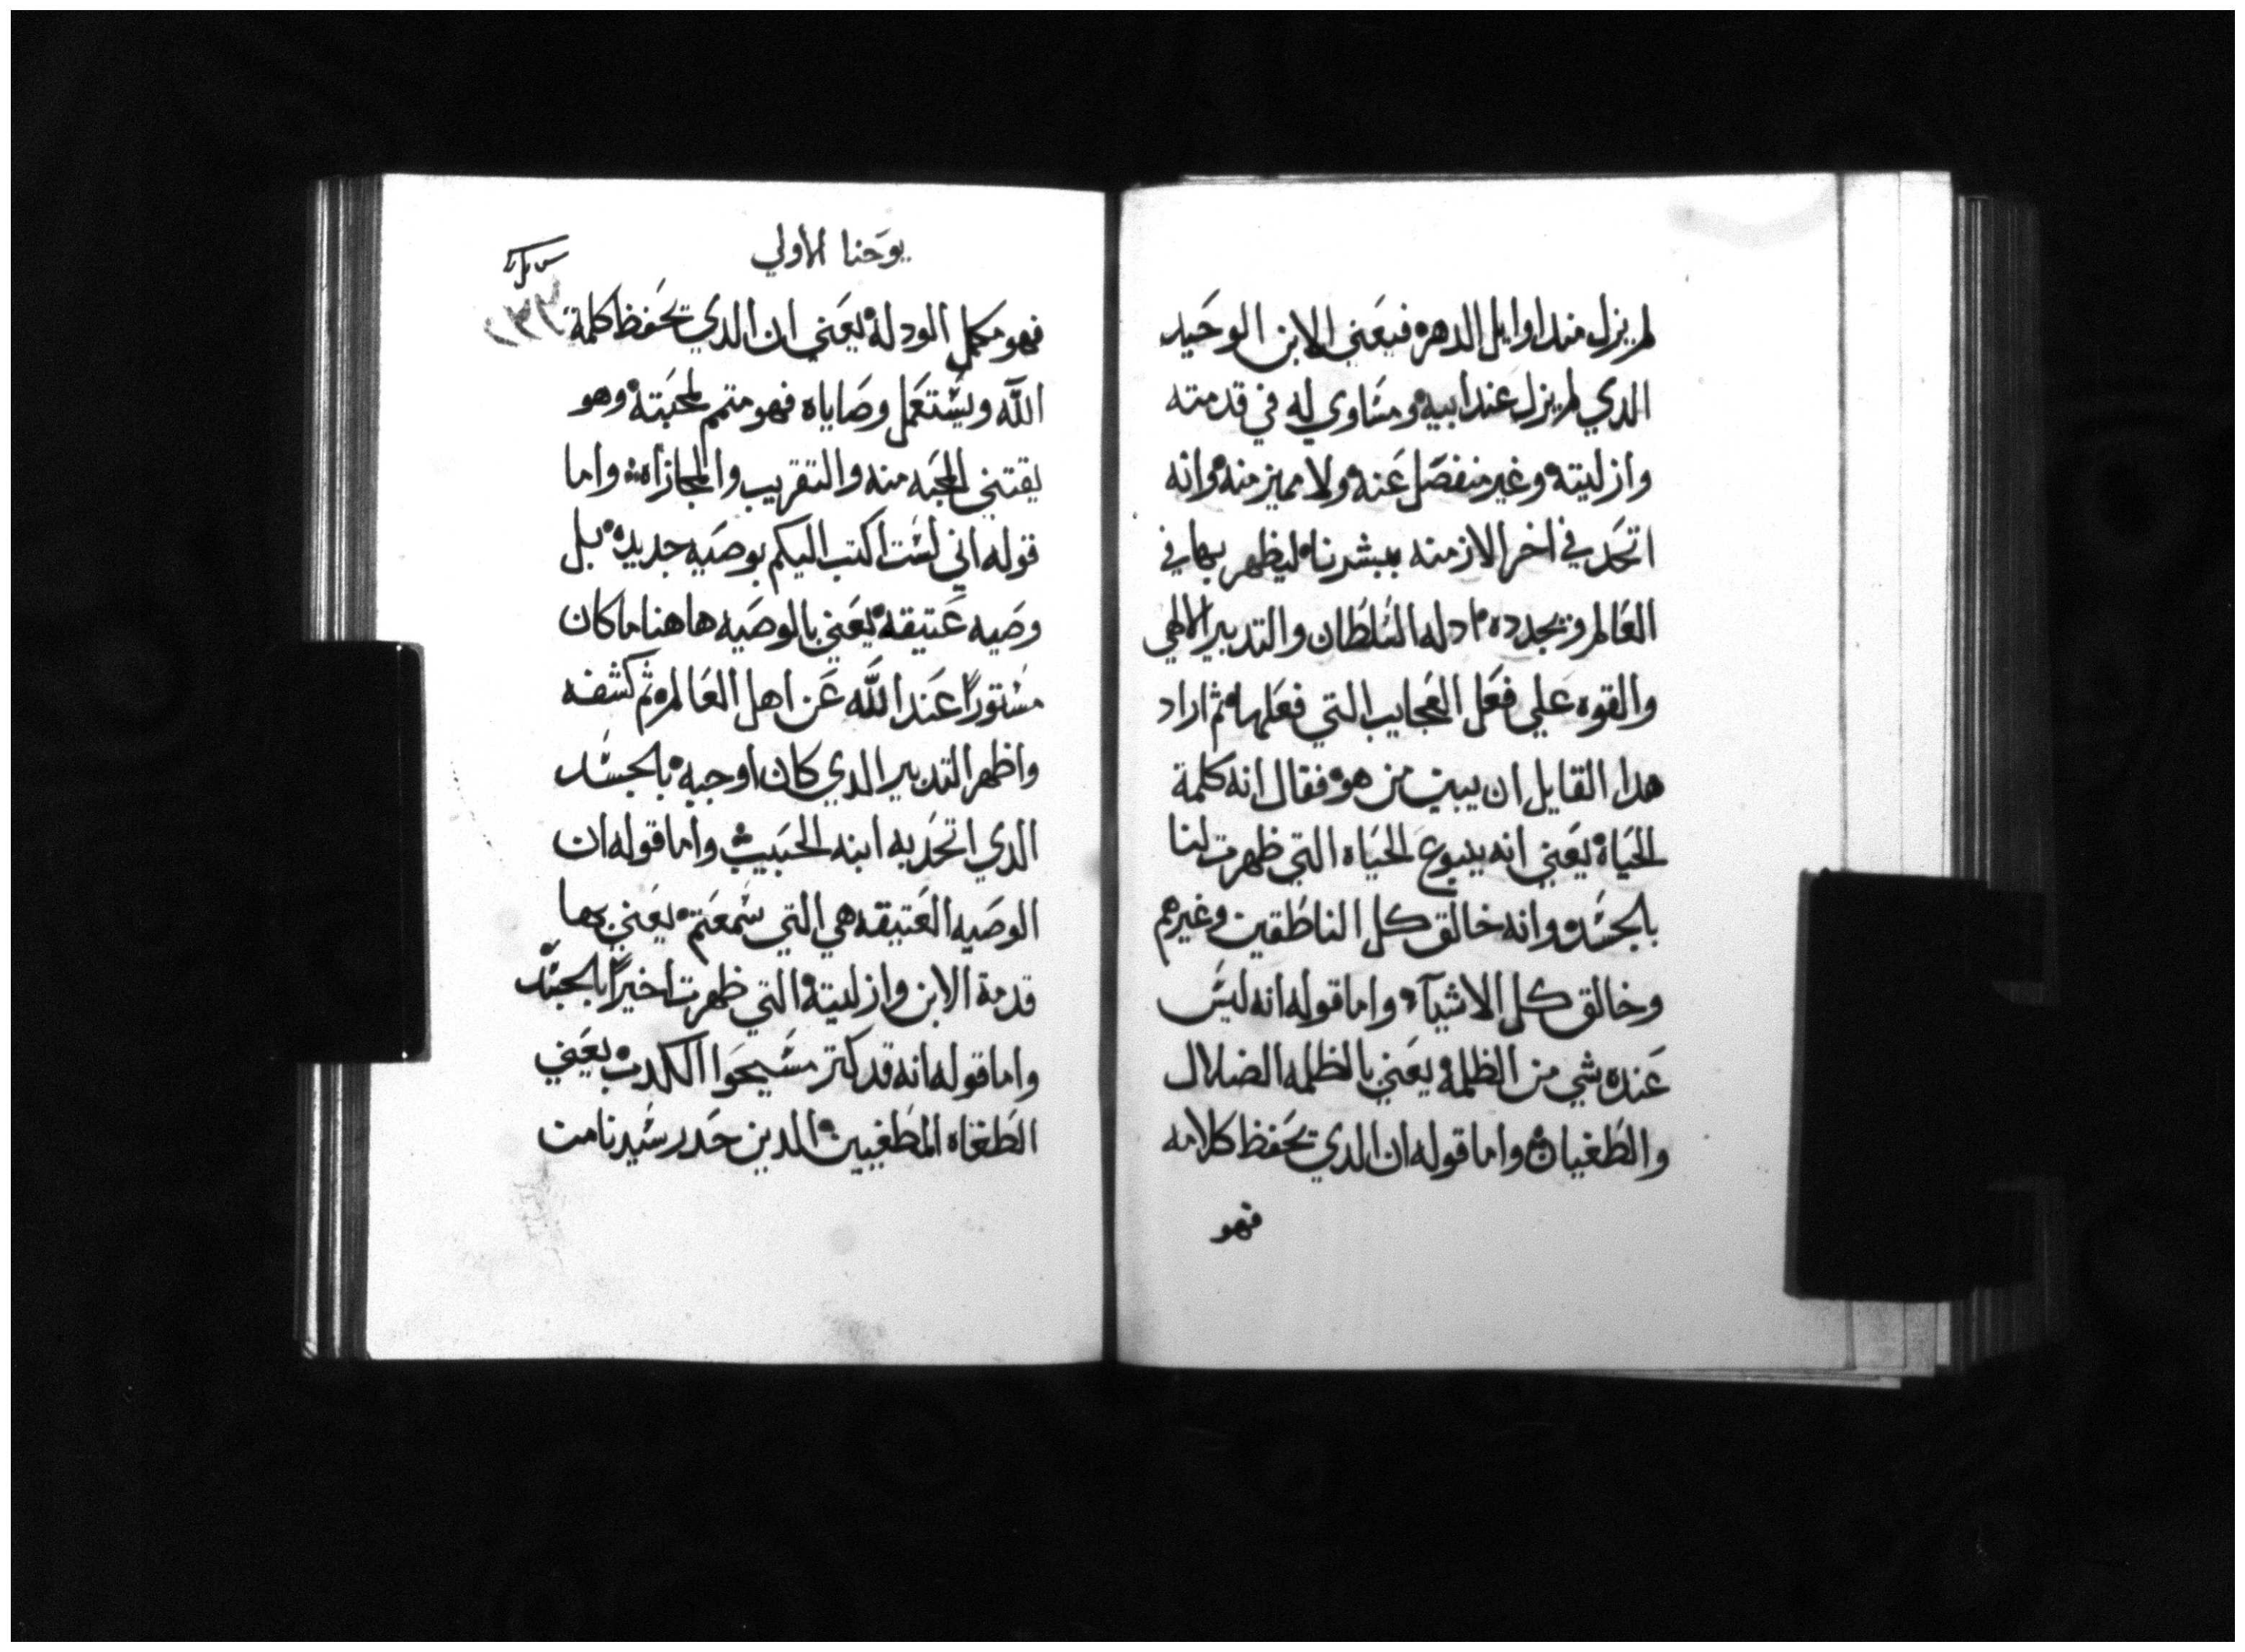 لم يزل مند اوايل الدهره فيعني الابن الوحيد
الدي لم يزل عند ابيه ومساوي له في قدمته
وازليته وغير منفصل عنه ولا مميز منه وانه
اتحد في اخر الازمنه ببشرتنا ليظهر بها في
العالم ويجدده اد له السلطان والتدبير الالهي
والقوه علي فعل العجايب التي فعلها ثم اراد
هدا القايل ان يبين من هو فقال انه كلمة
الحياة يعني انه ينبوع الحياه التي ظهرت لنا
بالجسد وانه خالق كل الناطقين وغيرهم
وخالق كل الاشيآء واما قوله انه ليس
عنده شي من الظلمه يعني بالظلمه الضلال
والطغيان واما قوله ان الدي يحفظ كلامه
فهو
يوحنا الاولي
فهو مكمل الود له يعني ان الدي يحفظ كلمة
الله ويستعمل وصاياه فهو متمم لمحبته وهو
يقتني المحبه منه والتقريب والمجازاه واما
قوله اني لست اكتب اليكم بوصيه جديده بل
وصيه عتيقه يعني بالوصيه هاهنا ما كان
مستورًا عند الله عن اهل العالم ثم كشفه
واظهر التدبير الدي كان اوجبه بالجسد
الدي اتحد به ابنه الحبيب واما قوله ان
الوصيه العتيقه هي التي سمعتم يعني بها
قدمة الابن وازليته التي ظهرت اخيرًا بالجسد
واما قوله انه قد كتر مسيحوا الكدب يعني
الطغاه المطغيين الدين حدر سيدنا من